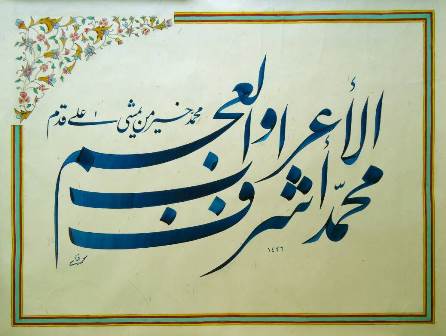 محمّد أشرف
الأعراب والعجم
محمد خير من يمشي على قدم
١٤٢٦